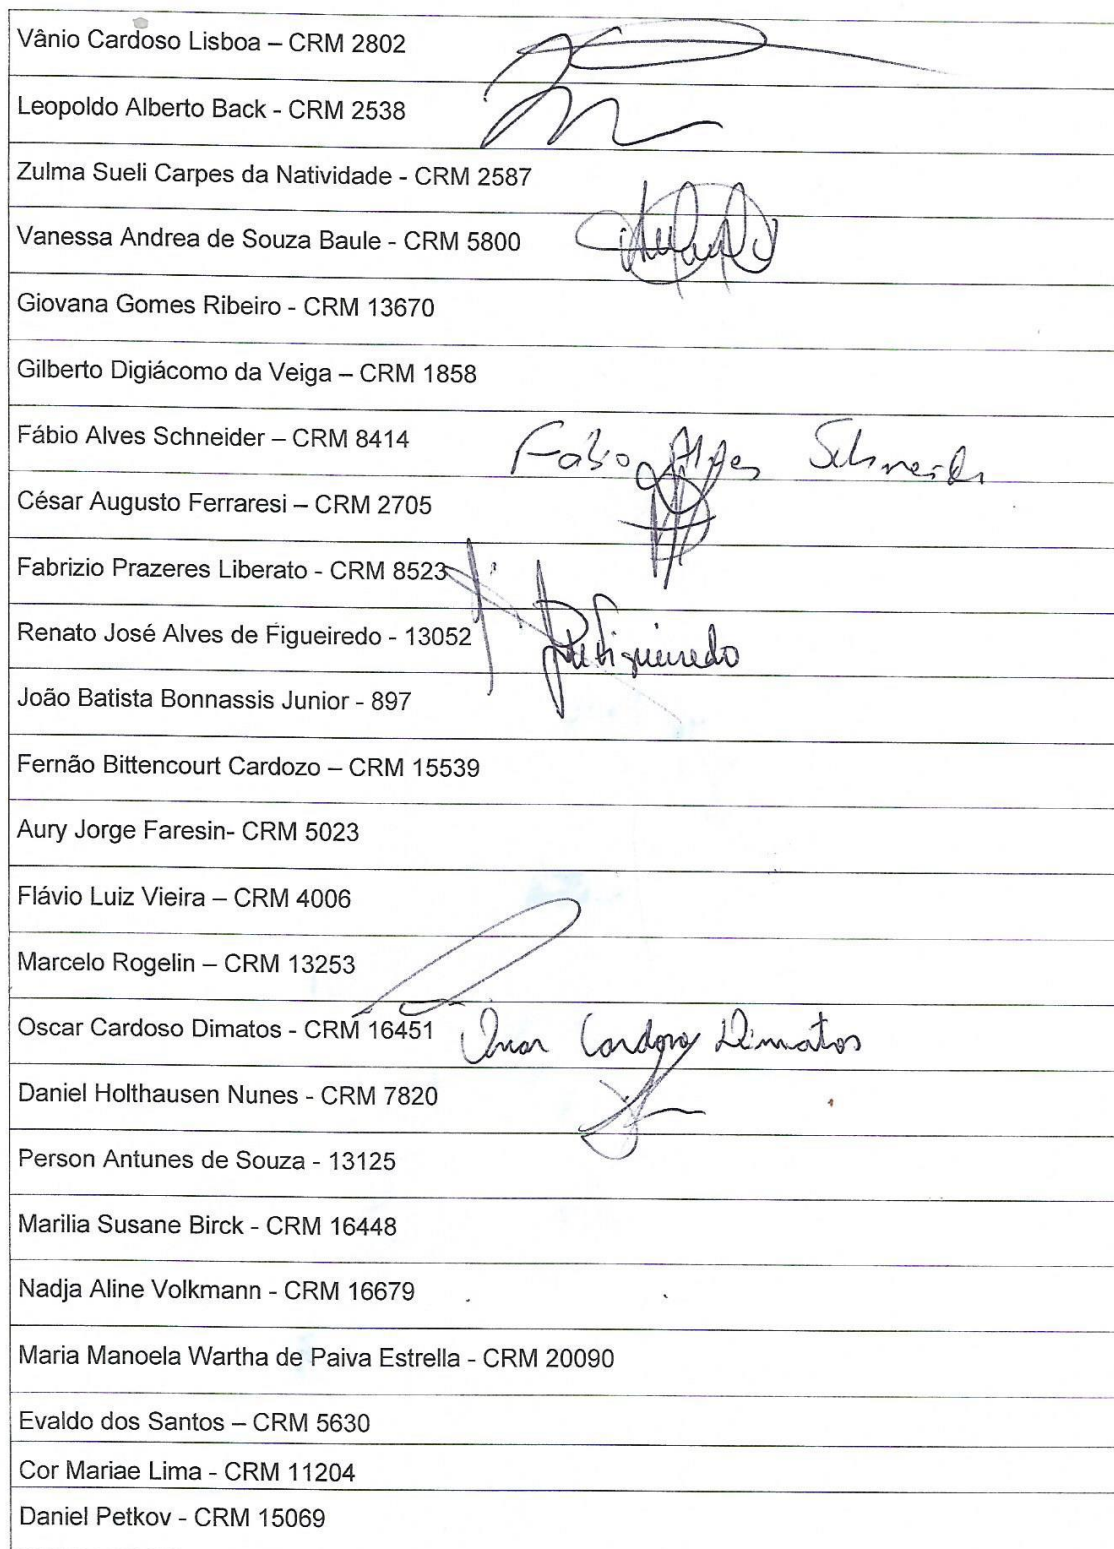 Vânio Cardoso Lisboa – CRM 2802
Leopoldo Alberto Back - CRM 2538
Zulma Sueli Carpes da Natividade - CRM 2587
Vanessa Andrea de Souza Baule - CRM 5800
Giovana Gomes Ribeiro - CRM 13670
Gilberto Digiácomo da Veiga – CRM 1858
Fábio Alves Schneider – CRM 8414 Fábio Alves Schneider
César Augusto Ferraresi – CRM 2705
Fabrizio Prazeres Liberato - CRM 8523
Renato José Alves de Figueiredo - 13052 Figueiredo
João Batista Bonnassis Junior - 897
Fernão Bittencourt Cardozo – CRM 15539
Aury Jorge Faresin- CRM 5023
Flávio Luiz Vieira – CRM 4006
Marcelo Rogelin – CRM 13253
Oscar Cardoso Dimatos - CRM 16451 Oscar Cardoso Dimatos
Daniel Holthausen Nunes - CRM 7820
Person Antunes de Souza - 13125
Marilia Susane Birck - CRM 16448
Nadja Aline Volkmann - CRM 16679
Maria Manoela Wartha de Paiva Estrella - CRM 20090
Evaldo dos Santos – CRM 5630
Cor Mariae Lima - CRM 11204
Daniel Petkov - CRM 15069